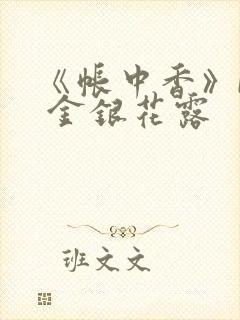 《帐中香》
金银花露
班文文